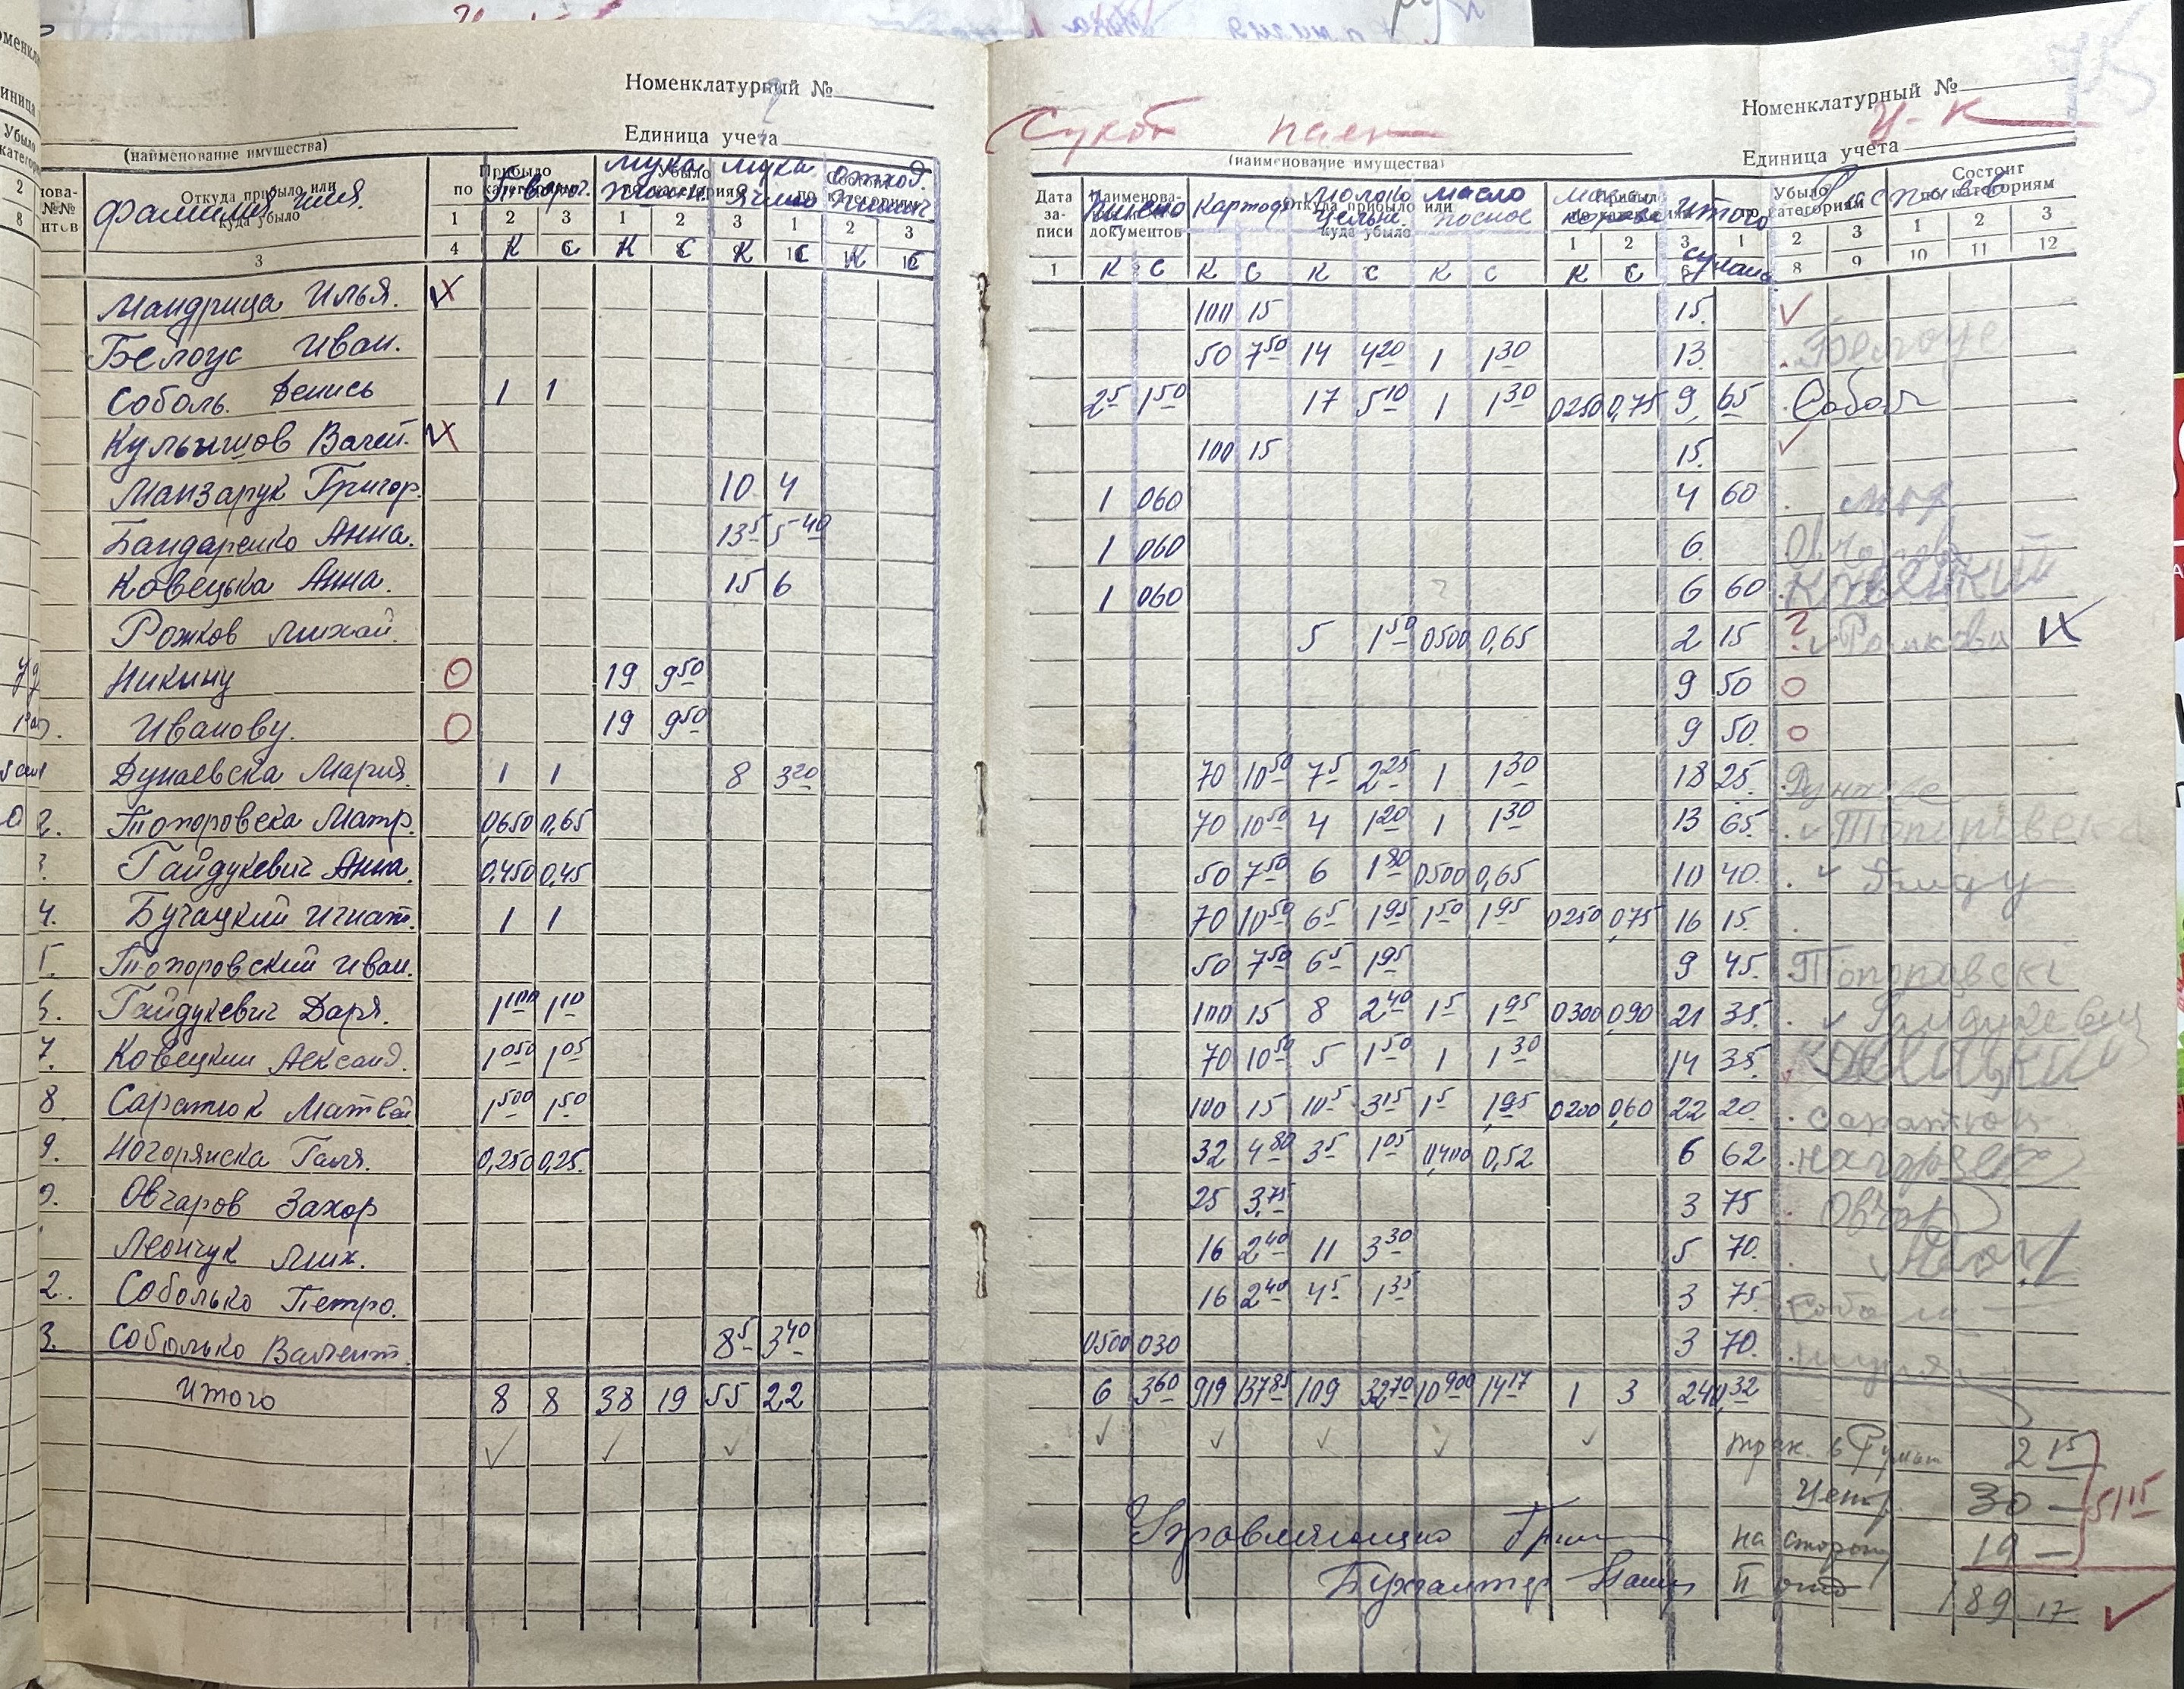 Номенклатурный №
Единица учета
(наименование имущества)
Откуда прибыло или куда убыло
Фамилия имя.
Прибыло по категориям
Творог.
Убыло по категориям
Мука пшен.
Мука ячмен
Состоит по категориям
отход. пшен.
1 2 3 1 2 3 1 2 3
3 4 К С К С К С К С
Мандрица Илья.
Белоус Иван.
Соболь. Денись 1 1
Кулышов Вален.
Манзарук Григор. 10 4
Бандаренко Анна. 13 5 5 40
Ковецька Анна. 15 6
Рожков Михаи.
Никину О 19 9 50
Иванову. О 19 9 50
Дунаевска Мария. 1 1 8 3 20
2. Топоровска Матр. 0,650 0,65
3. Гайдукевич Анна. 0,450 0,45
4. Бучацкий Игнат. 1 1
5. Топоровский Иван.
6. Гайдукевич Даря. 1 100 1 10
7. Ковецкий Александ. 1 050 1 05
8. Саратюк Матвей 1 500 1 50
9. Ногорянска Галя. 0,250 0,25.
0. Овчаров Захор
Леончук Мих.
2. Соболько Петро.
3. Соболько Валент. 8 5 3 40
Итого 8 8 38 19 55 22
Номенклатурный №
Сухой паек
Ц-К
Единица учета
(наименование имущества)
Дата записи
Наименование документов
Пшено
Картоф
Откуда прибыло или куда убыло
Молоко цельн.
Масло посное
Прибыло по категориям
Итого сумма
Убыло по категориям
Состоит по категориям
Роспись
1 2 3 1 2 3 1 2 3
1 К С К С К С К С К С 8 9 10 11 12
100 15 15.
50 7 50 14 4 20 1 1 30 13 Белоус
2 5 1 50 17 5 10 1 1 30 0250 0,75 9, 65 Собол
100 15 15.
1 060 4 60
1 060 6
1 060 6 60 Ковецкий
5 1 50 0500 0,65 2 15 ? Рожкова
9 50 О
9 50. О
70 10 50 7 5 2 25 1 1 30 18 25.
70 10 50 4 1 20 1 1 30 13 65. Топоровска
50 7 50 6 1 80 0500 0,65 10 40.
70 10 50 6 5 1 95 1 50 1 95 0250 0,75 16 15.
50 7 50 6 5 1 95 9 45. Топоровски
100 15 8 2 40 1 5 1 95 0300 0,90 21 35. Гайдукевич
70 10 50 5 1 50 1 1 30 14 35. Ковецкий
100 15 10 5 3 15 1 5 1,95 0200 0,60 22 20 саратюк
32 4 80 3 5 1 05 0,400 0,52 6 62
25 3,75 3 75 Овчар
16 2 40 11 3 30 5 70.
16 2 40 4 5 1 35 3 75.
0500 030 3 70.
6 3 60 919 137 85 109 32 70 10 900 14 17 1 3 240,32
2 15
30 —
51 15
Управляющий
на сторону 19 —
Бухгалтер
II
189 17